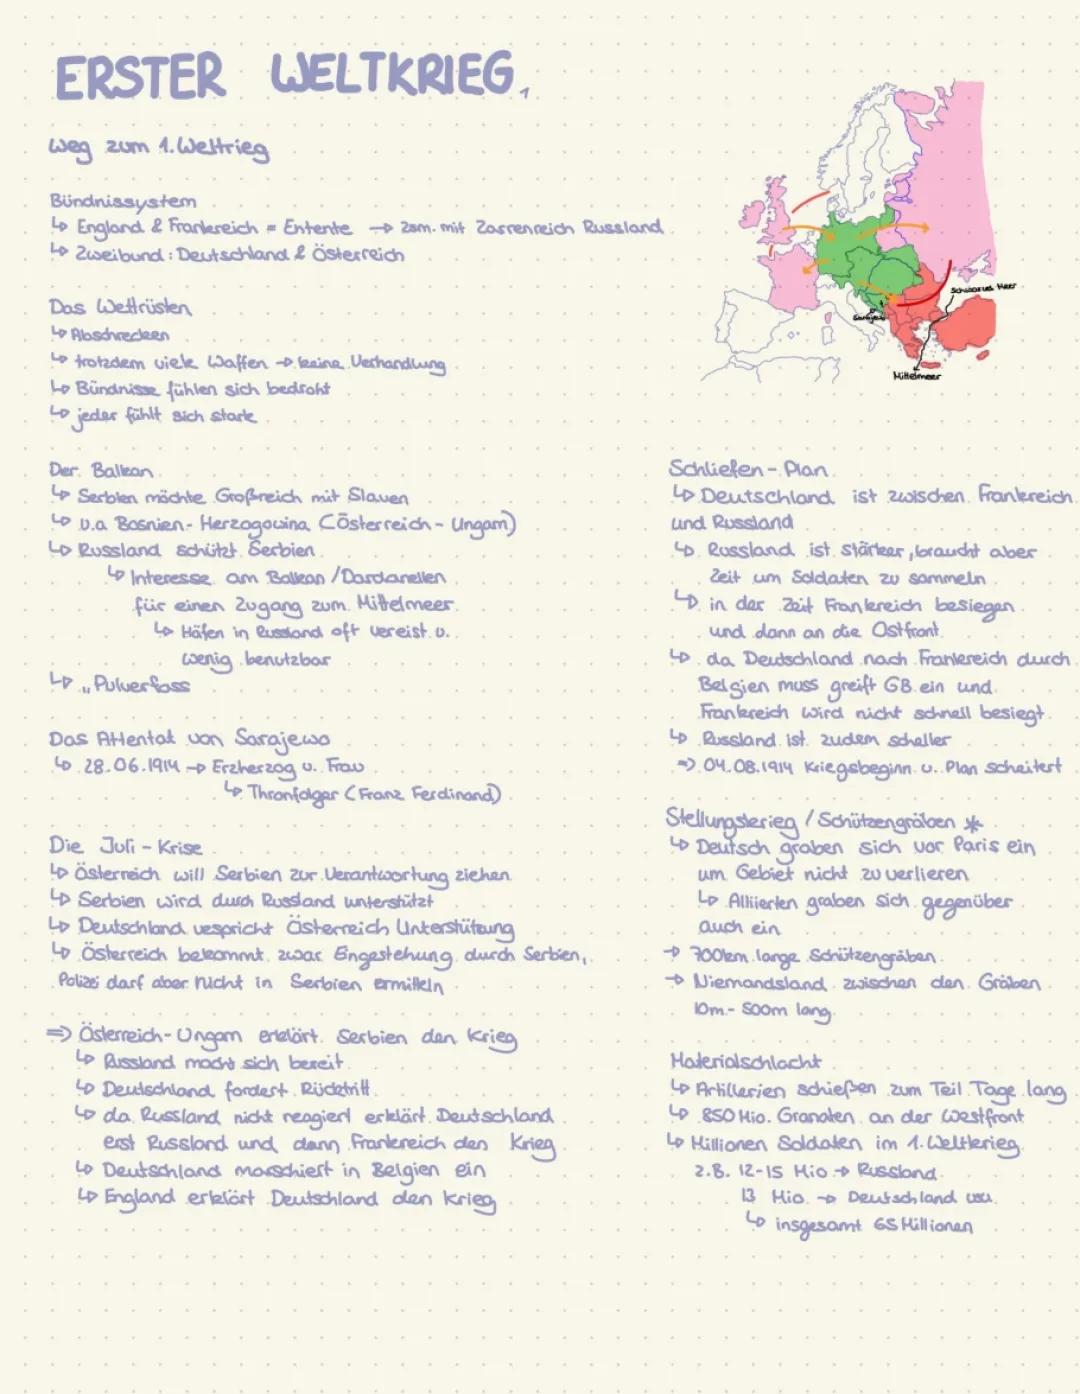 ERSTER WELTKRIEG
Weg zum 1. Weltrieg
Bündnissystem
↳ England & Frankreich = Entente → zsm. mit Zarrenreich Russland
↳ Zweibund: Deutschland & Österreich
Das Wettrüsten
↳ Abschrecken
↳ trotzdem viele Waffen → keine Verhandlung
↳ Bündnisse fühlen sich bedroht
↳ jeder fühlt sich stark
Der Balkan
↳ Serbien möchte Großreich mit Slaven
↳ v.a Bosnien-Herzogowina (Österreich-Ungarn)
↳ Russland schützt Serbien
↳ Interesse am Balkan / Dardanellen
für einen Zugang zum Mittelmeer
↳ Häfen in Russland oft vereist u.
wenig benutzbar
↳ „Pulverfass
Das Attentat von Sarajewo
↳ 28.06.1914 → Erzherzog u. Frau
↳ Thronfolger (Franz Ferdinand)
Die Juli-Krise
↳ Österreich will Serbien zur Verantwortung ziehen
↳ Serbien wird durch Russland unterstützt
↳ Deutschland vespricht Österreich Unterstützung
↳ Österreich bekommt zwar Eingestehung durch Serbien,
Polizei darf aber nicht in Serbien ermitteln
⇒ Österreich-Ungarn erklärt Serbien den Krieg
↳ Russland macht sich bereit
↳ Deutschland fordert Rücktritt
↳ da Russland nicht reagiert erklärt Deutschland
erst Russland und dann Frankreich den Krieg
↳ Deutschland marschiert in Belgien ein
↳ England erklärt Deutschland den Krieg
Schwarzes Meer
Sarajewo
Mittelmeer
Schliefen-Plan
↳ Deutschland ist zwischen Frankreich
und Russland
↳ Russland ist stärker, braucht aber
Zeit um Soldaten zu sammeln
↳ in der Zeit Frankreich besiegen
und dann an die Ostfront
↳ da Deutschland nach Frankreich durch
Belgien muss greift GB ein und
Frankreich wird nicht schnell besiegt
↳ Russland ist zudem scheller
⇒ 04.08.1914 Kriegsbeginn u. Plan scheitert
Stellungskrieg / Schützengräben *
↳ Deutsch graben sich vor Paris ein
um Gebiet nicht zu verlieren
↳ Alliierten graben sich gegenüber
auch ein
→ 700km lange Schützengräben
→ Niemandsland zwischen den Gräben
10m-500m lang
Materialschlacht
↳ Artillerien schießen zum Teil Tage lang
↳ 850 Mio. Granaten an der Westfront
↳ Millionen Soldaten im 1. Weltkrieg
z.B. 12-15 Mio → Russland
13 Mio. → Deutschland usw.
↳ insgesamt 65 Millionen